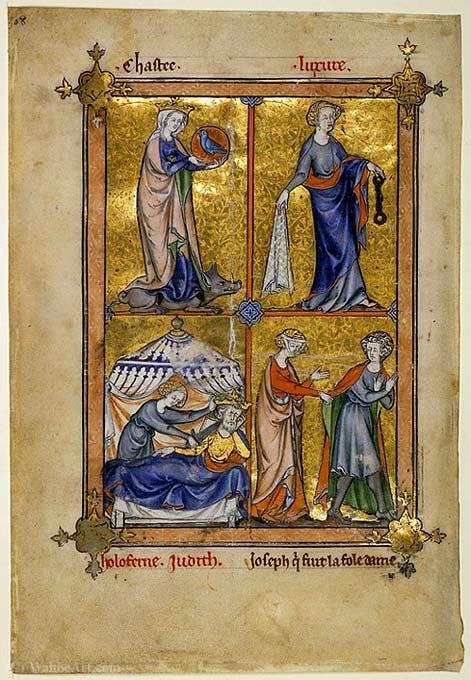 108
· Chastee ·
· luxure ·
holoferne · Judith ·
Joseph q̃ fuit la fole dame
© WahooArt.com